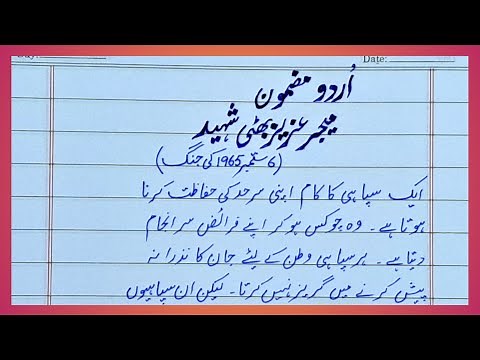 Date:
اُردو مضمون
میجر عزیز بھٹی شہید
(6 ستمبر 1965 کی جنگ)
ایک سپاہی کا کام اپنی سرحد کی حفاظت کرنا
ہوتا ہے۔ وہ چوکس ہو کر اپنے فرائض سر انجام
دیتا ہے۔ ہر سپاہی وطن کے لیئے جان کا نذرانہ
پیش کرنے میں گریز نہیں کرتا۔ لیکن ان سپاہیوں